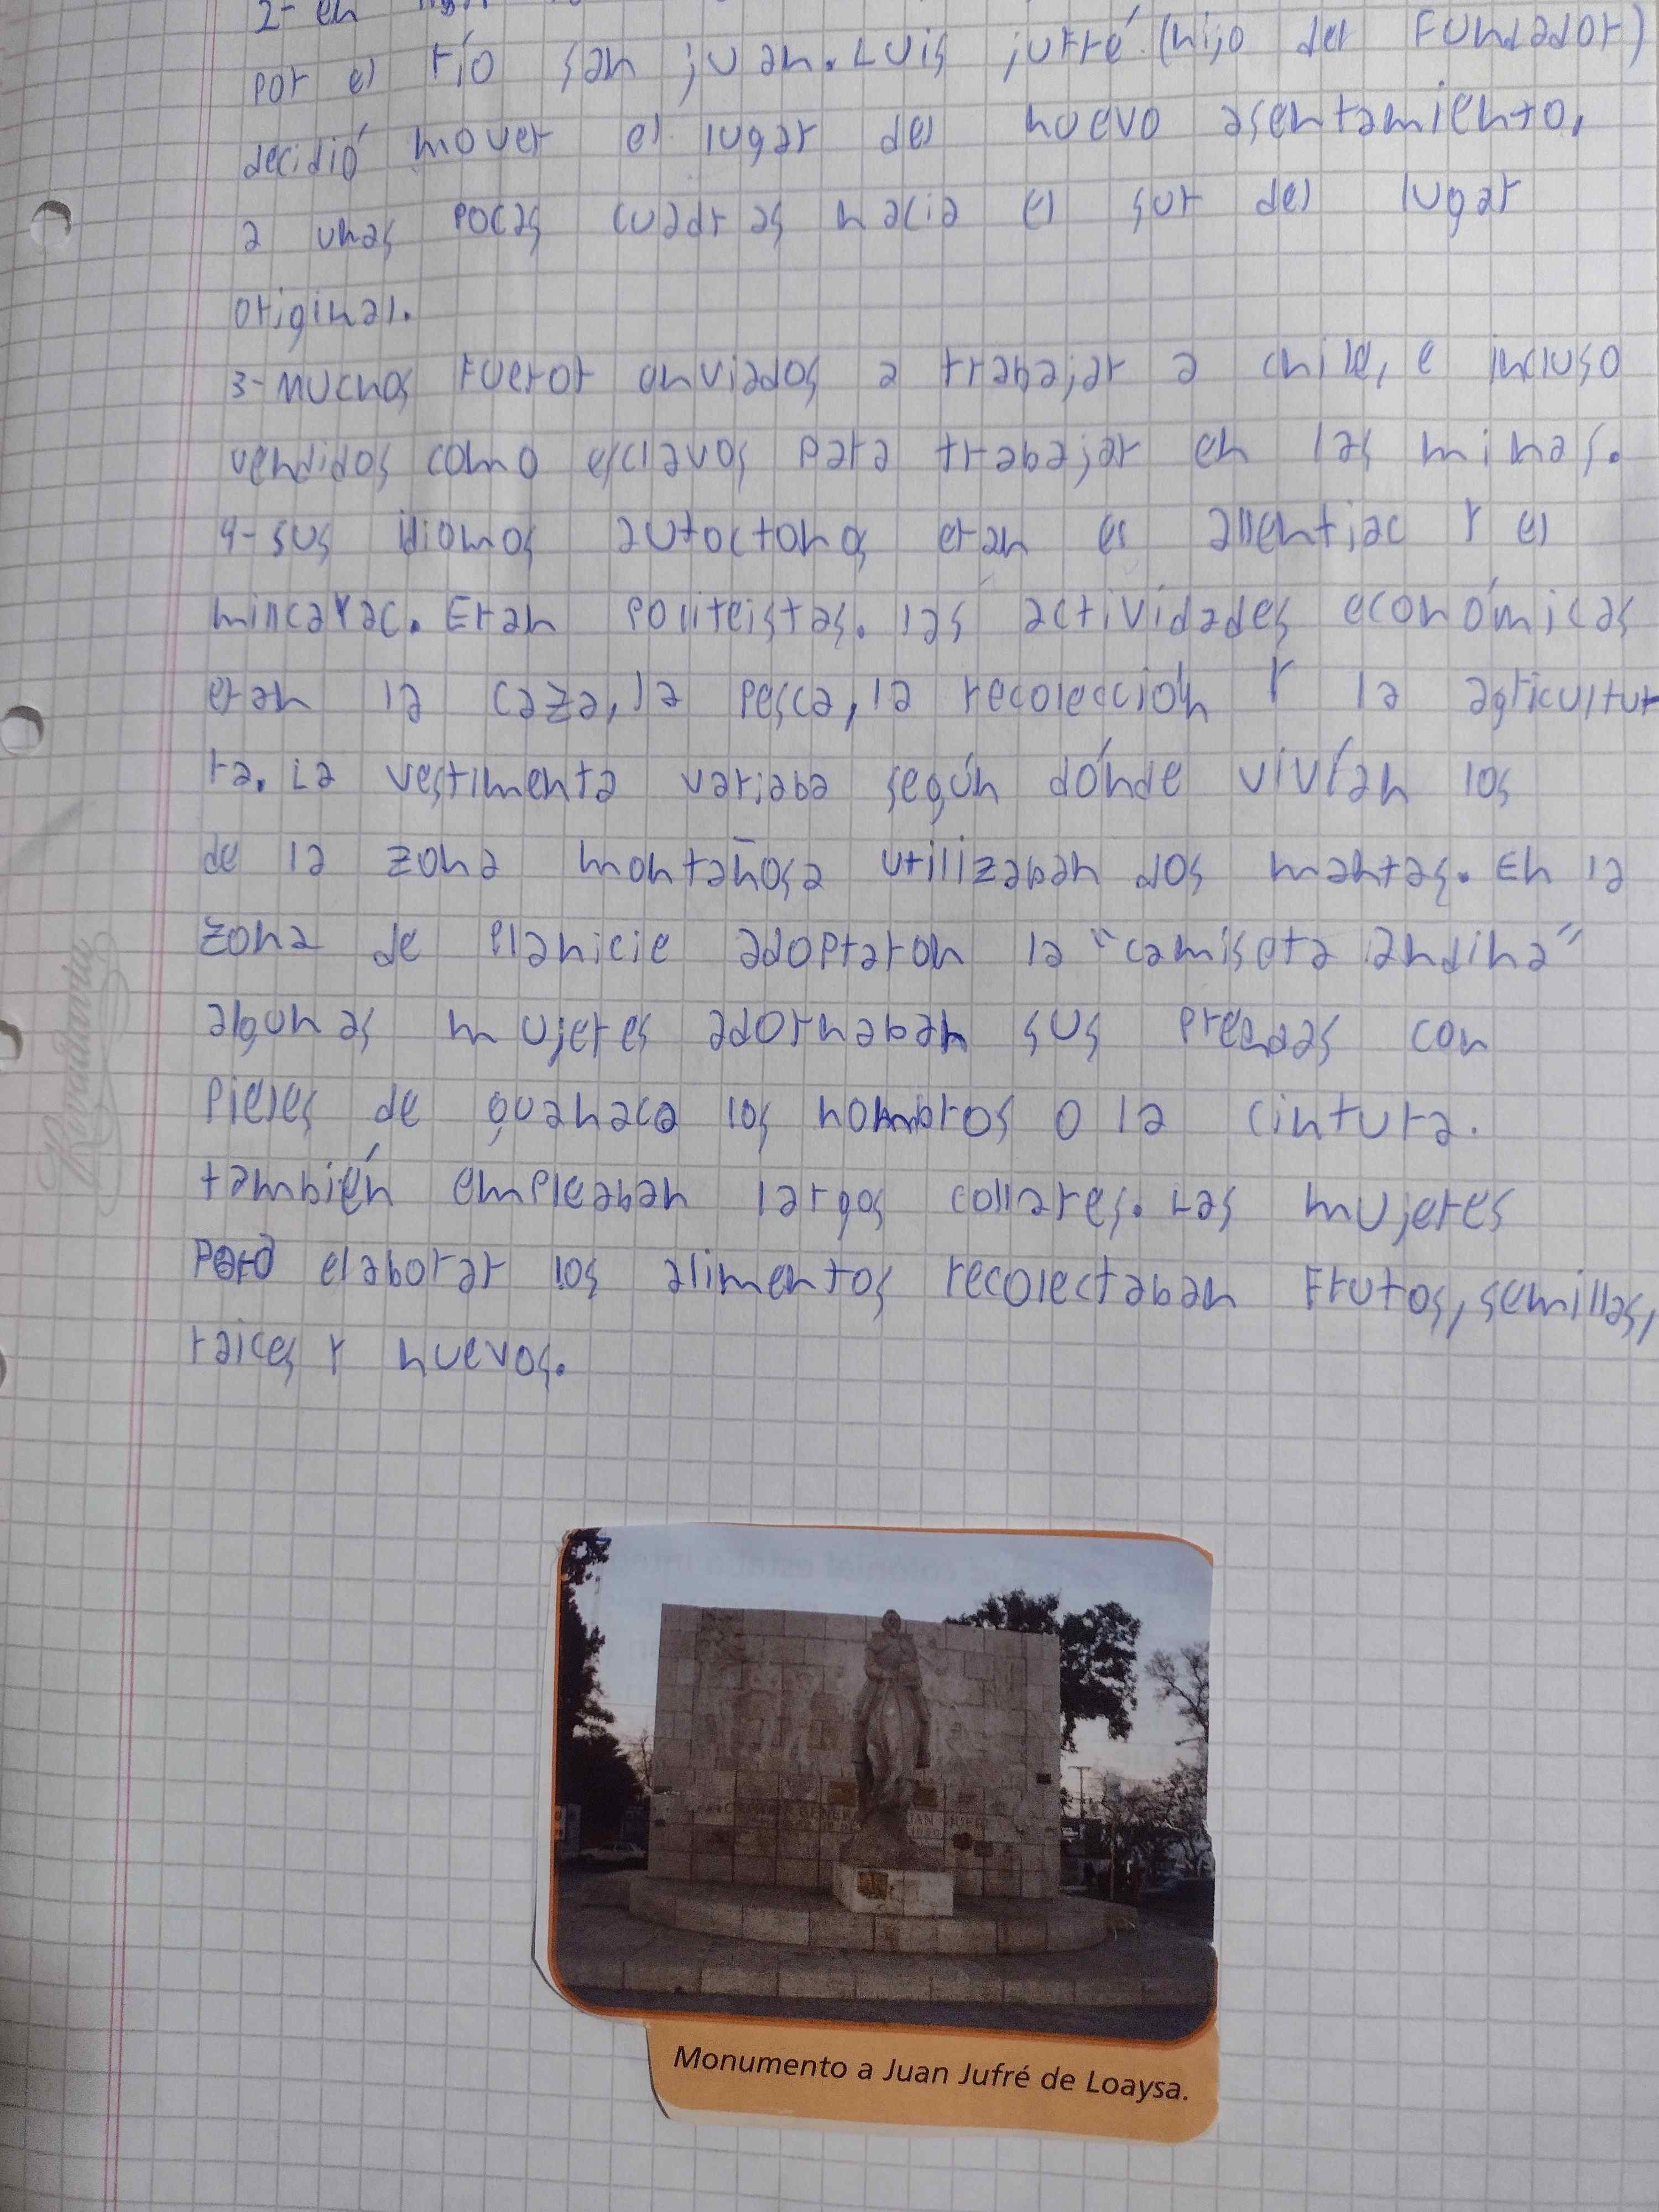 2- en
por el río san juan. Luis jufré (hijo del Fundador)
decidió mover el lugar del nuevo asentamiento,
a unas pocas cuadras hacia el sur del lugar
original.
3- Muchos fueror anviados a trabajar a chile, e incluso
vendidos como esclavos para trabajar en las minas.
4- sus idiomos autoctonos eran el allentiac y el
mincayac. Eran politeistas. las actividades económicas
eran la caza, la pesca, la recolección y la agricultur
ra. La vestimenta variaba según dónde vivían los
de la zona montañosa utilizaban dos mantas. En la
zona de planicie adoptaron la "camiseta andina"
algunas mujeres adornaban sus prendas con
pieles de guanaco los hombros o la cintura.
también empleaban largos collares. Las mujeres
elaborar los alimentos recolectaban Frutos, semillas,
raices y huevos.
Rivadavia
GENERAL JUAN JUFRE
Monumento a Juan Jufré de Loaysa.